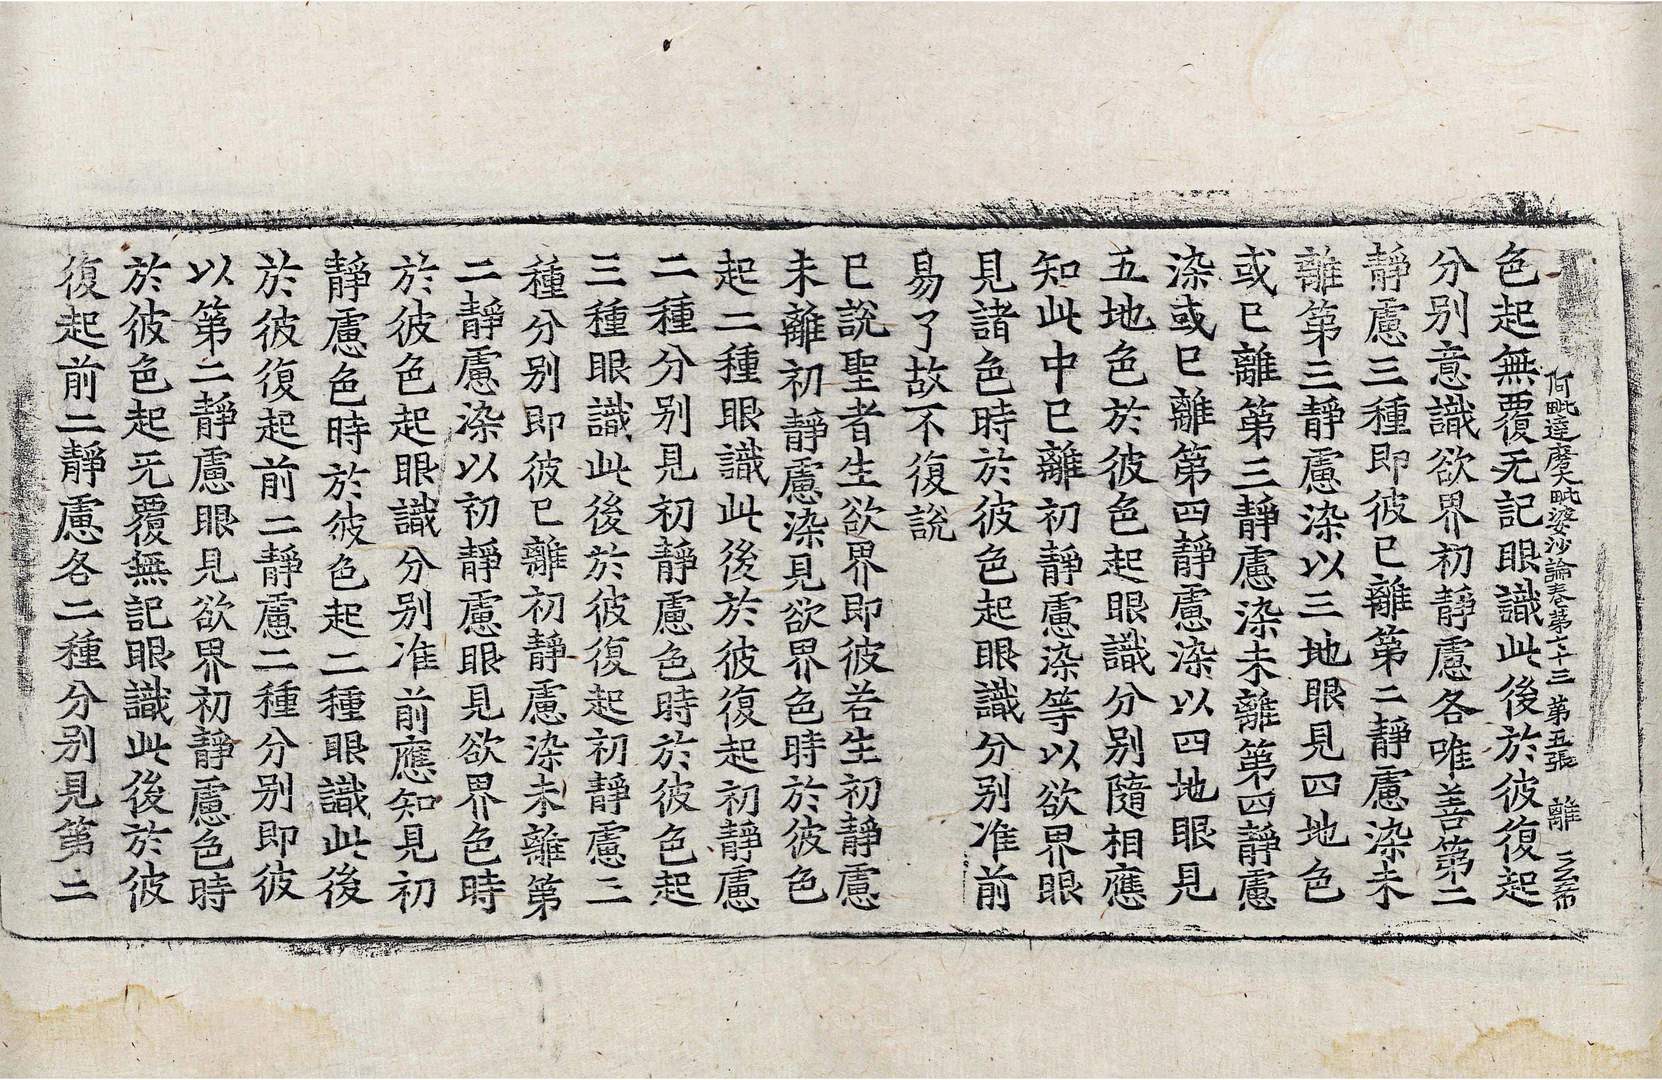 阿毗達磨大毗婆沙論卷第七十三 第五張 離
色起無覆无記眼識此後於彼復起
分别意識欲界初靜慮各唯善第二
靜慮三種即彼已離第二靜慮染未
離第三靜慮染以三地眼見四地色
或已離第三靜慮染未離第四靜慮
染或已離第四靜慮染以四地眼見
五地色於彼色起眼識分别隨相應
知此中已離初靜慮染等以欲界眼
見諸色時於彼色起眼識分别准前
易了故不復說
已說聖者生欲界即彼若生初靜慮
未離初靜慮染見欲界色時於彼色
起二種眼識此後於彼復起初靜慮
二種分别見初靜慮色時於彼色起
三種眼識此後於彼復起初靜慮三
種分别即彼已離初靜慮染未離第
二靜慮染以初靜慮眼見欲界色時
於彼色起眼識分别准前應知見初
靜慮色時於彼色起二種眼識此後
於彼復起前二靜慮二種分别即彼
以第二靜慮眼見欲界初靜慮色時
於彼色起无覆無記眼識此後於彼
復起前二靜慮各二種分别見第二